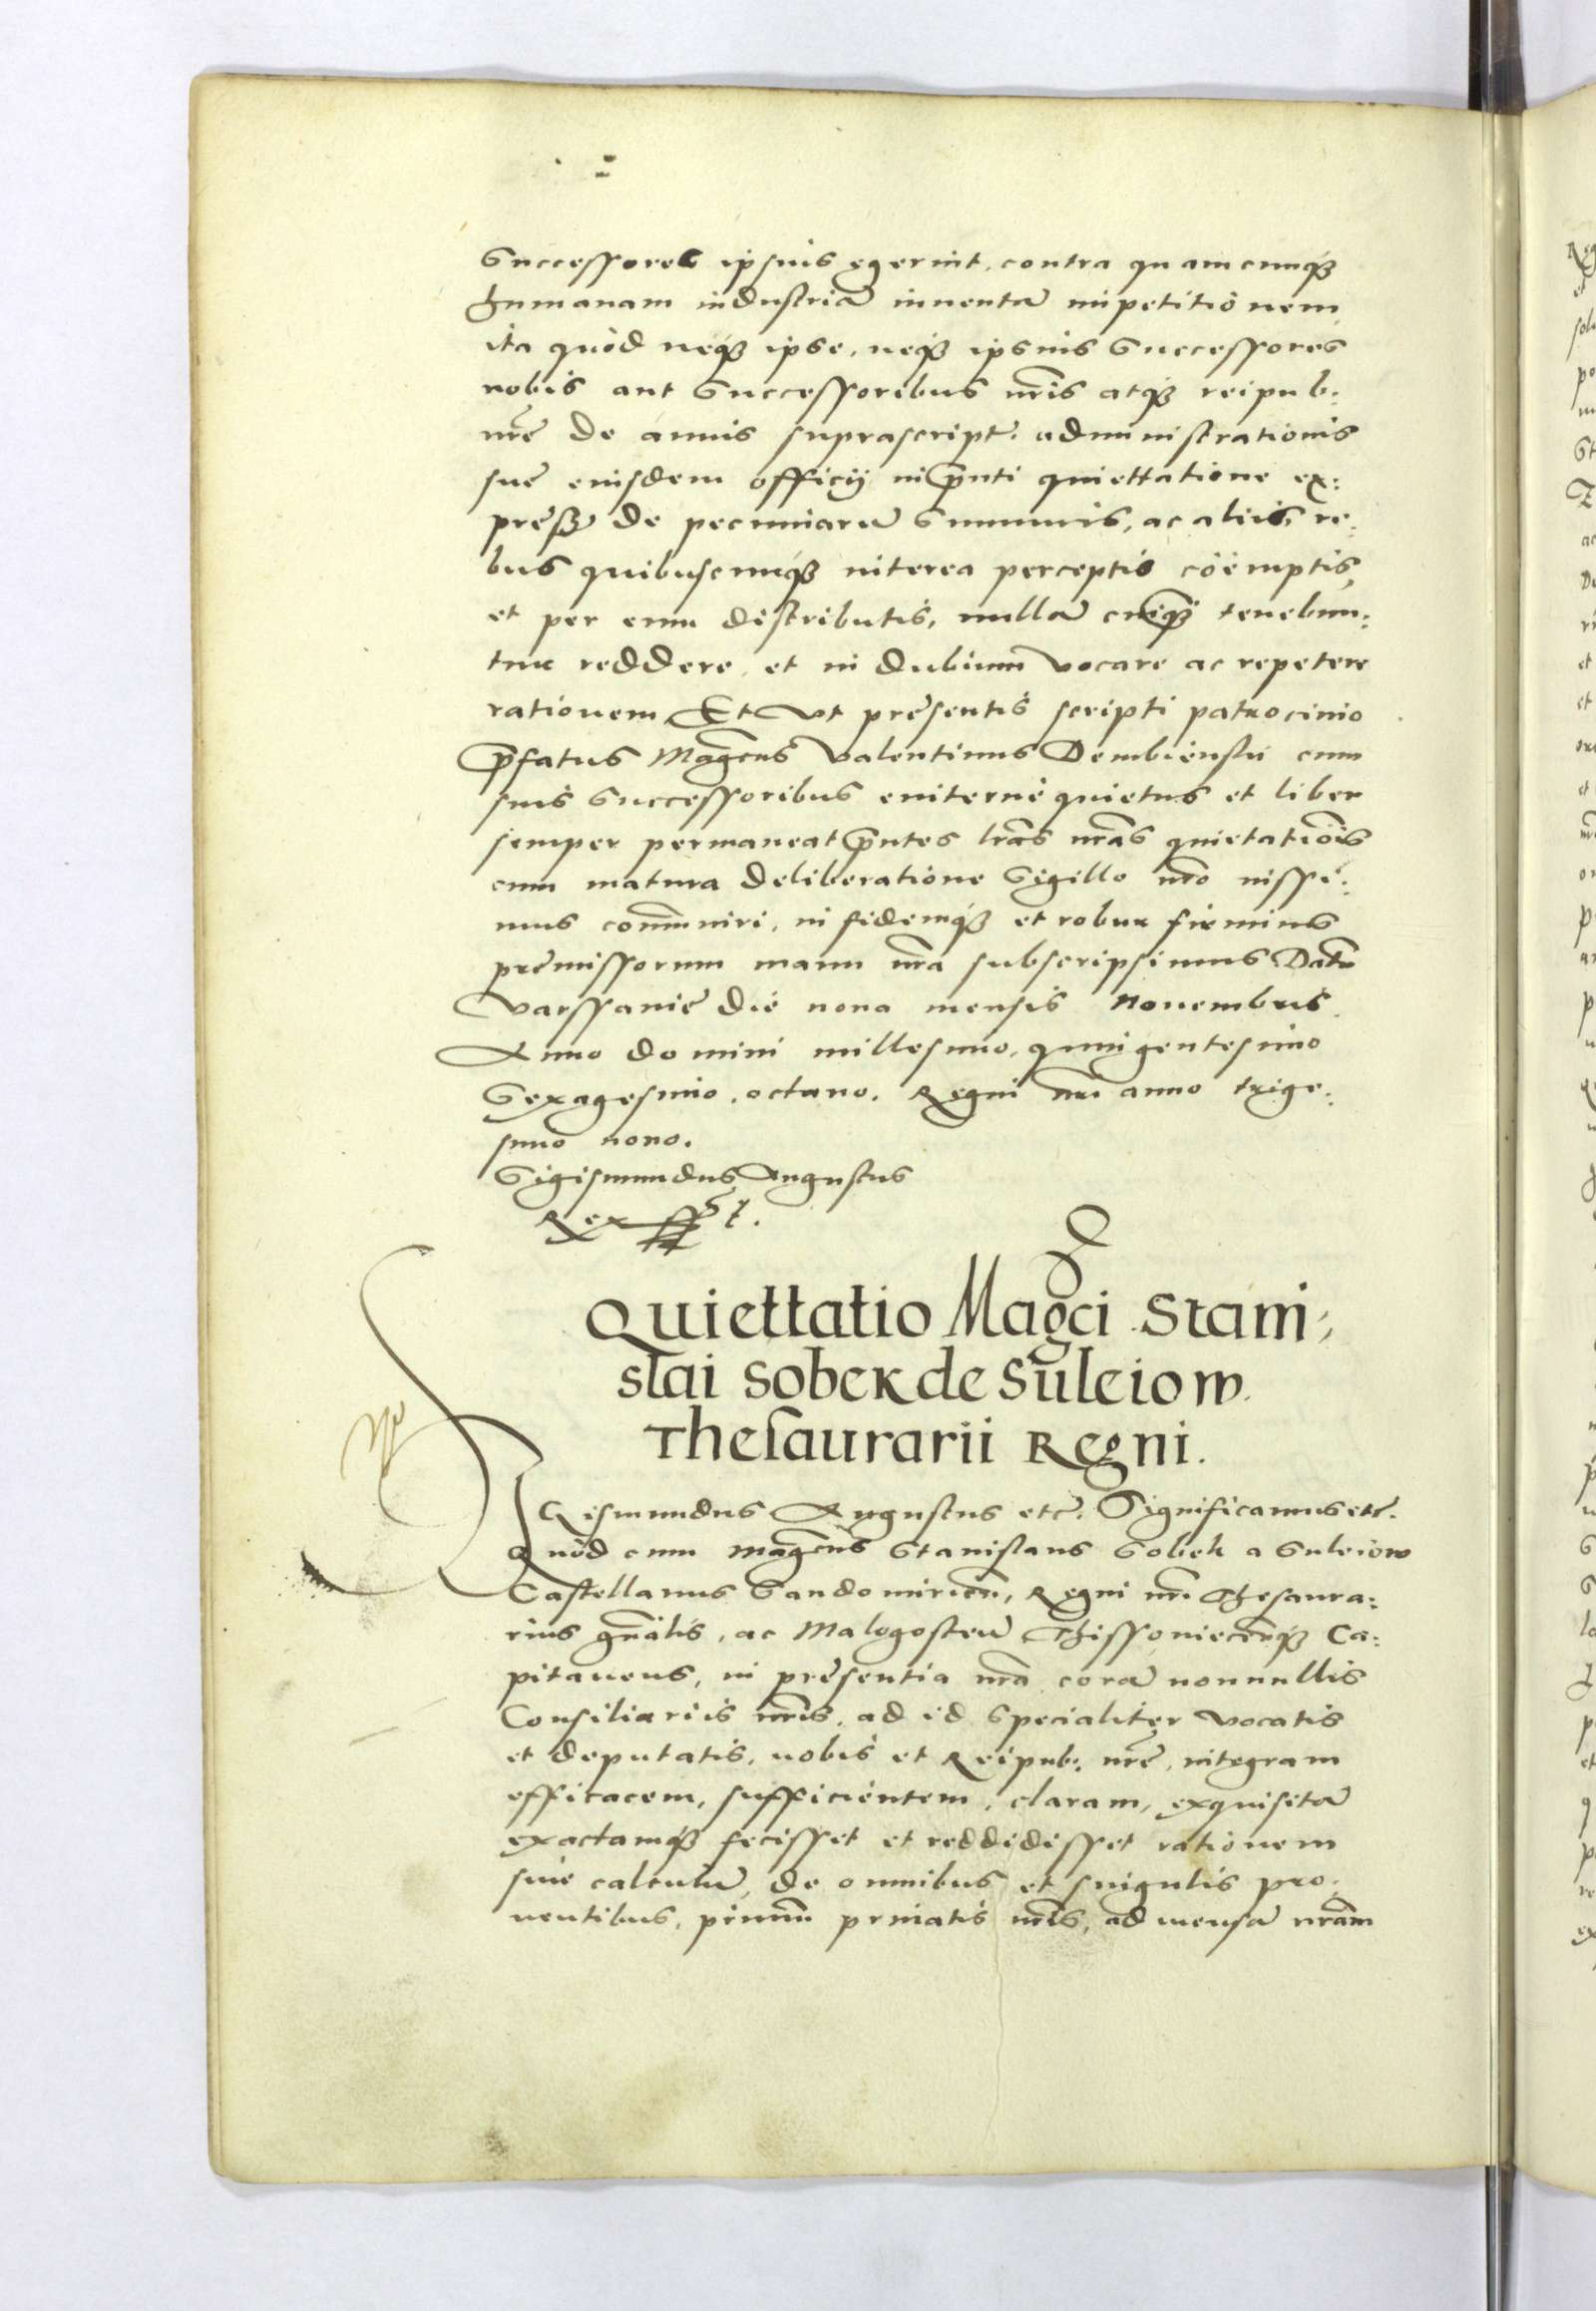 Successores ipsius egerint, contra quamcunq₃
humanam industriā inuentā impetitionem
ita quòd neq₃ ipse, neq₃ ipsius Successores
nobis aut Successoribus nr̃is atq₃ reipub:
nr̃e de annis suprascript: administrationis
sue eiusdem officij in p̃nti quiettatione ex:
presse de pecuniarū Summis, ac alijs re:
bus quibuscunq₃ interea perceptis coëmptis,
et per eum distributis, nullā cuiq₃ tenebun:
tur reddere, et in dubium vocare ac repetere
rationem. Et vt presentis scripti patrocinio
p̃fatus Magc̃us Valentinus Dembiensky cum
suis Successoribus euiternè quietus et liber
semper permaneat p̃ntes lr̃as nr̃as quietatiõis
cum matura deliberatione Sigillo nr̃o iussi:
mus com̃uniri, in fidemq₃ et robur firmius
premissorum manu nr̃a subscripsimus Datũ
Varssauie die nona mensis Nouembris
Anno domini millesimo, quingentesimo
Sexagesimo, octauo. Regni nr̃i anno trige:
simo nono.
Sigismundus Augustus
Rex sst.
Quiettatio Magci Stani:
slai Sobek de Suleiow
Thesaurarii Regni.
Sigismundus Augustus etc̃. Significamus etc̃.
Quòd cum Magc̃us Stanislaus Sobek a Suleiow
Castellanus Sandomirieñ, Regni nr̃i Thesaura:
rius gn̄alis, ac Malogosteñ Thissouiecenq₃ Ca:
pitaneus, in presentia nr̃a corā nonnullis
Consiliariis nr̃is, ad id Specialiter vocatis
et deputatis, nobis et Reipub: nr̃e, integram
efficacem, sufficientem, claram, exquisitā
exactamq₃ fecisset et reddidisset rationem
siue calculū, de omnibus et singulis pro:
uentibus, primũ priuatis nr̃is, ad mensā nr̃am